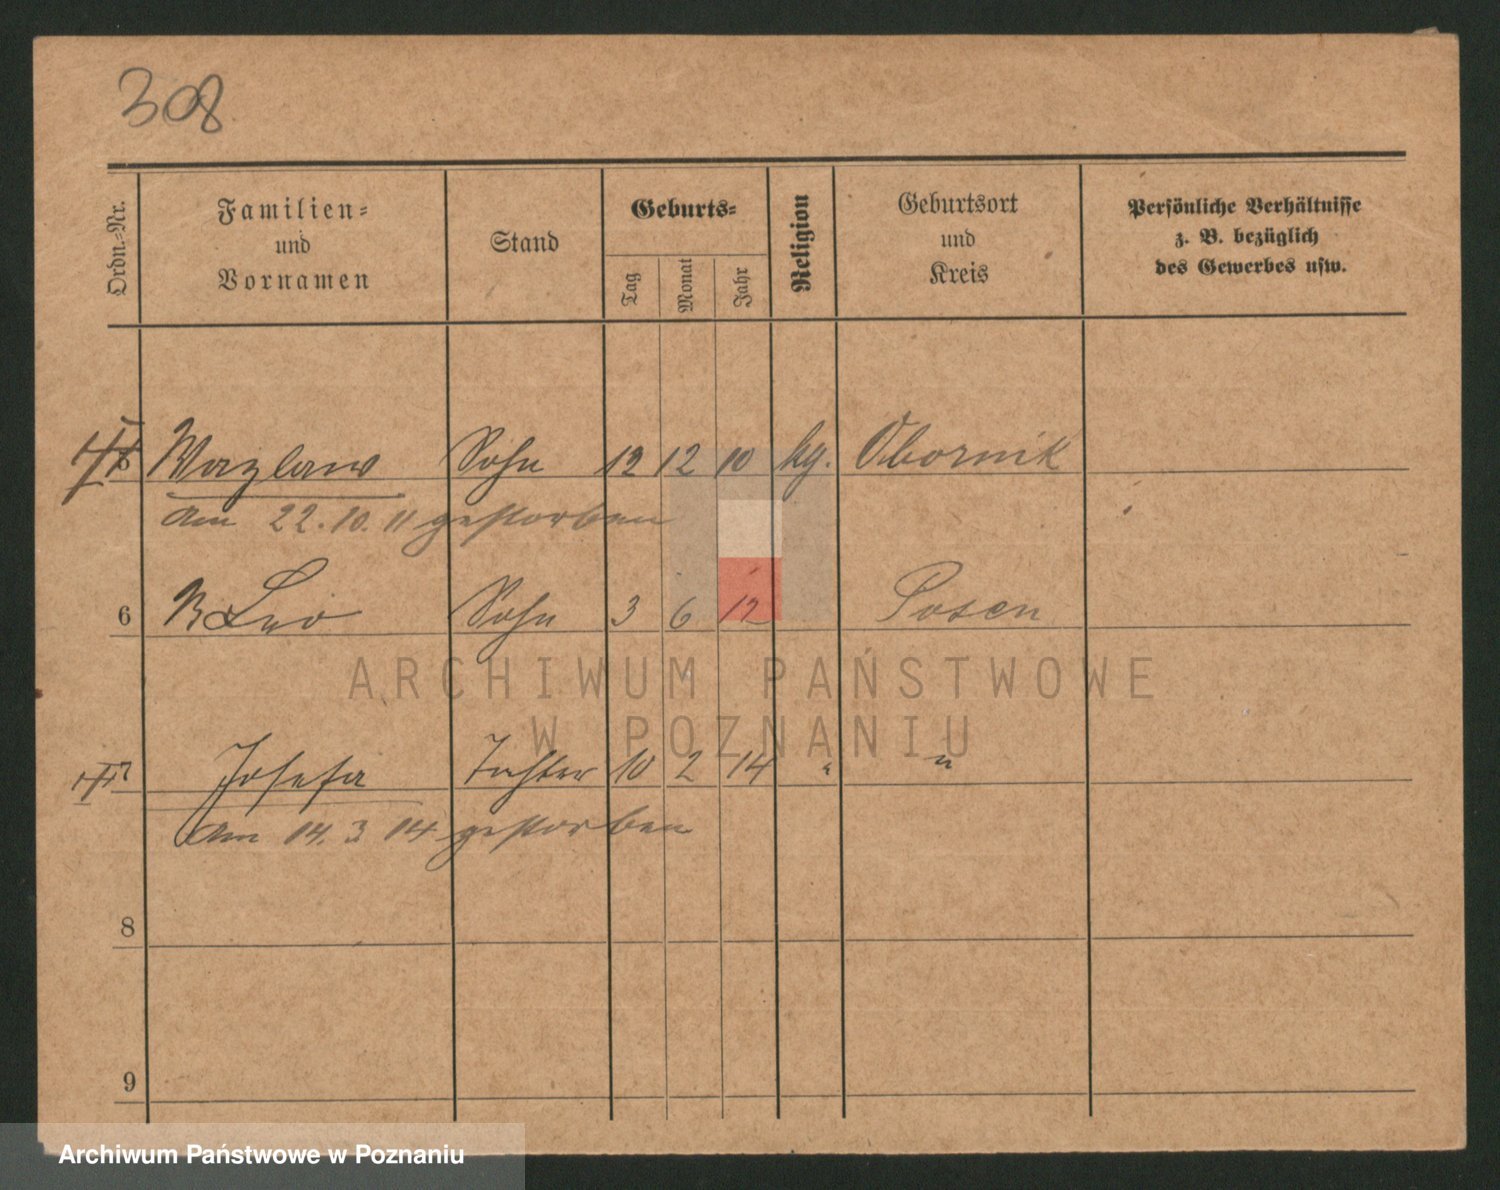 308
Ordn.=Nr.
Familien=
und
Vornamen
Stand
Geburts=
Tag
Monat
Jahr
Religion
Geburtsort
und
Kreis
Persönliche Verhältnisse
z. B. bezüglich
des Gewerbes usw.
5 Wazlaw Sohn 12 12 10 kg. Obornik
am 22.10.11 gestorben
6 Leo Sohn 3 6 12 Posen
ARCHIWUM PAŃSTWOWE
W POZNANIU
7 Josefa Tochter 10 2 14 " "
am 14.3 14 gestorben
8
9
Archiwum Państwowe w Poznaniu